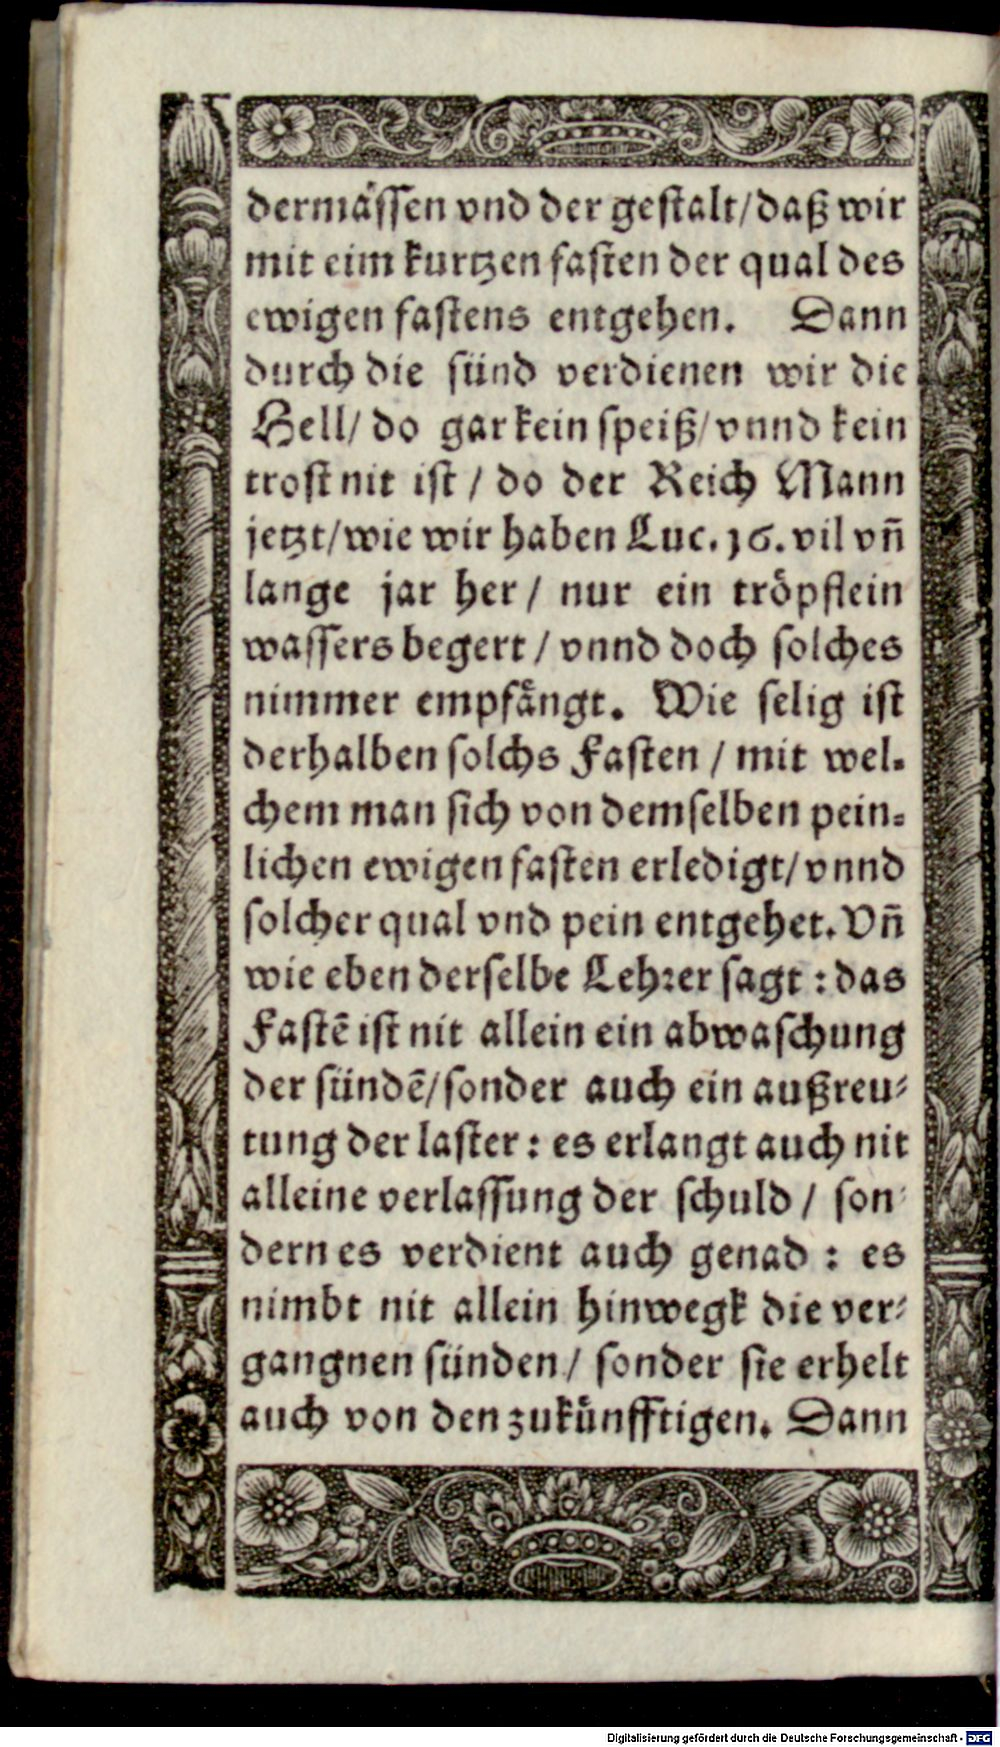 dermåssen vnd der gestalt/daß wir
mit eim kurtzen fasten der qual des
ewigen fastens entgehen. Dann
durch die sünd verdienen wir die
Hell/ do gar kein speiß/vnnd kein
trost nit ist / do der Reich Mann
jetzt/wie wir haben Luc. 16. vil vñ
lange jar her / nur ein tröpflein
wassers begert / vnnd doch solches
nimmer empfångt. Wie selig ist
derhalben solchs Fasten / mit wel-
chem man sich von demselben pein-
lichen ewigen fasten erledigt/vnnd
solcher qual vnd pein entgehet. Vñ
wie eben derselbe Lehrer sagt : das
Fastē ist nit allein ein abwaschung
der sündē/sonder auch ein außreu-
tung der laster : es erlangt auch nit
alleine verlassung der schuld / son-
dern es verdient auch genad : es
nimbt nit allein hinwegk die ver-
gangnen sünden / sonder sie erhelt
auch von den zukünfftigen. Dann
Digitalisierung gefördert durch die Deutsche Forschungsgemeinschaft - DFG